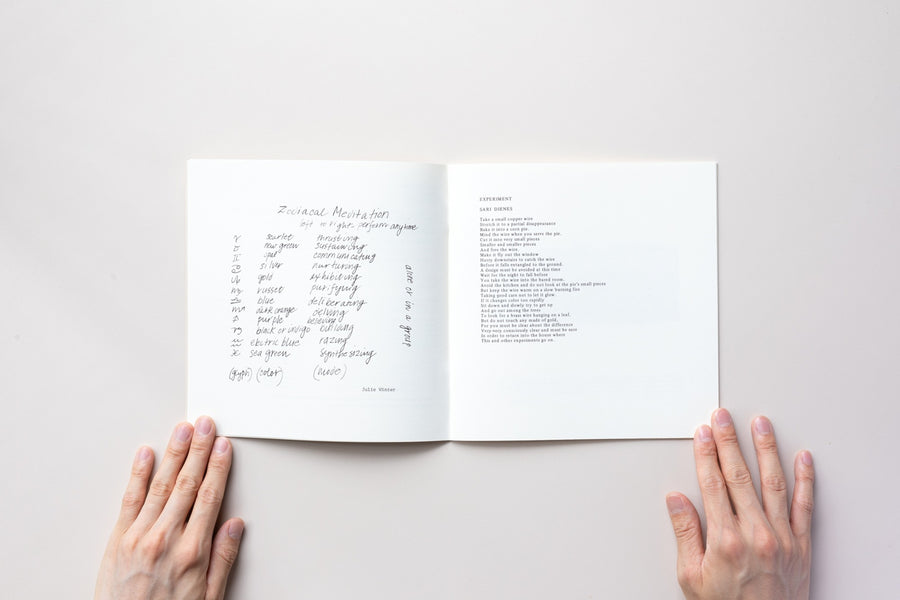 Zodiacal Meditation
left to right, perform anytime
♈ scarlet thrusting
♉ new green sustaining
♊ opal communicating
♋ silver nurturing
♌ gold exhibiting
♍ russet purifying
♎ blue deliberating
♏ dark orange delving
♐ purple believing
♑ black or indigo building
♒ electric blue razing
♓ sea green synthesizing
(glyph) (color) (mode)
alone or in a group
Julie Winter
EXPERIMENT
SARI DIENES
Take a small copper wire
Stretch it to a partial disappearance
Bake it into a corn pie.
Mind the wire when you serve the pie.
Cut it into very small pieces
Smaller and smaller pieces
And free the wire.
Make it fly out the window
Hurry downstairs to catch the wire
Before it falls entangled to the ground.
A design must be avoided at this time
Wait for the night to fall before
You take the wire into the based room.
Avoid the kitchen and do not look at the pie's small pieces
But keep the wire warm on a slow burning fire
Taking good care not to let it glow.
If it changes color too rapidly
Sit down and slowly try to get up
And go out among the trees
To look for a brass wire hanging on a leaf,
But do not touch any made of gold,
For you must be clear about the difference
Very very consciously clear and must be sure
In order to return into the house where
This and other experiments go on.